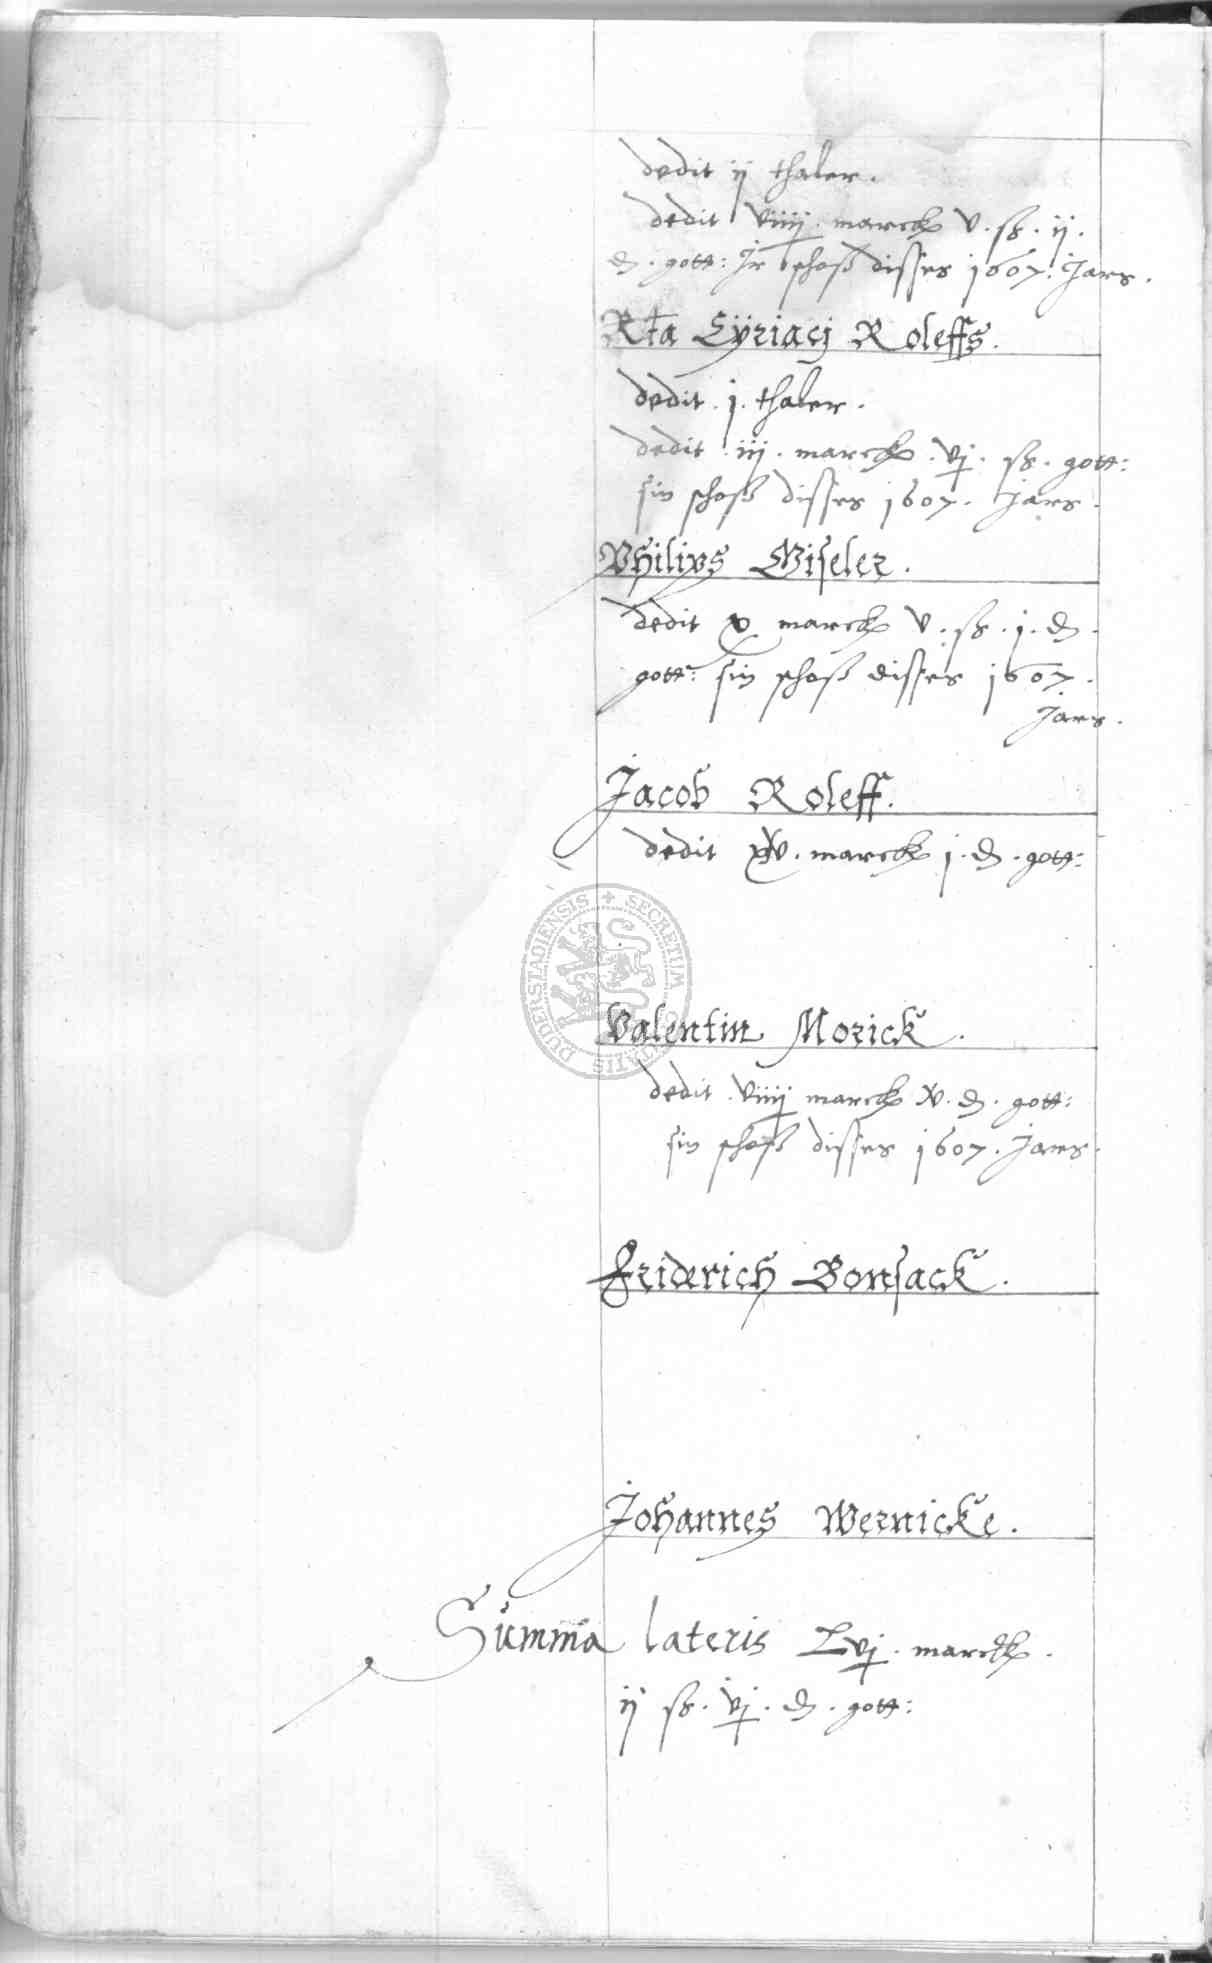 dedit ij thaler.
dedit viiij. marck v. ß. ij.
₰. gott: Jr schoß disses 1607. Jars.
Rta Cÿriacj Roleffs.
dedit. j. thaler.
dedit. iij. marck. vj. ß. gott:
sin schoß disses 1607. Jars.
Philips Giseler.
dedit x marck v. ß. j. ₰.
gott: sin schoß disses 1607.
Jars.
Jacob Roleff.
dedit xv. marck j. ₰. gott:
DUDERSTADIENSIS + SECRETUM CIVITATIS
Valentin Morick.
dedit. viiij marck v. ₰. gott:
sin schoß disses 1607. Jars.
Friderich Bonsack.
Johannes Wernicke.
Summa lateris Lvj. marck.
ij ß. vj. ₰. gott: